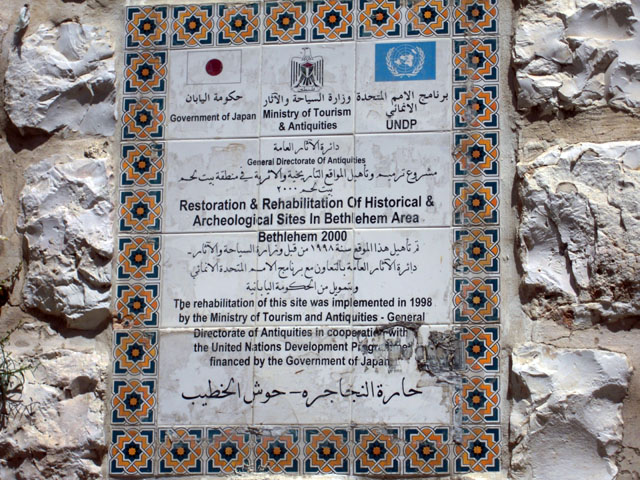 حكومة اليابان
Government of Japan
وزارة السياحة والآثار
Ministry of Tourism
& Antiquities
برنامج الامم المتحدة
الانمائي
UNDP
دائرة الآثار العامة
General Directorate Of Antiquities
مشروع ترميم وتاهيل المواقع التاريخية والاثرية في منطقة بيت لحم
بيت لحم ٢٠٠٠
Restoration & Rehabilitation Of Historical &
Archeological Sites In Bethlehem Area
Bethlehem 2000
تم تاهيل هذا الموقع سنة ١٩٩٨ من قبل وزارة السياحة والآثار-
دائرة الآثار العامة بالتعاون مع برنامج الامم المتحدة الانمائي
وبتمويل من الحكومة اليابانية
The rehabilitation of this site was implemented in 1998
by the Ministry of Tourism and Antiquities - General
Directorate of Antiquities In cooperation with
the United Nations Development
financed by the Government of Japan
حارة النجاجره – حوش الخطيب